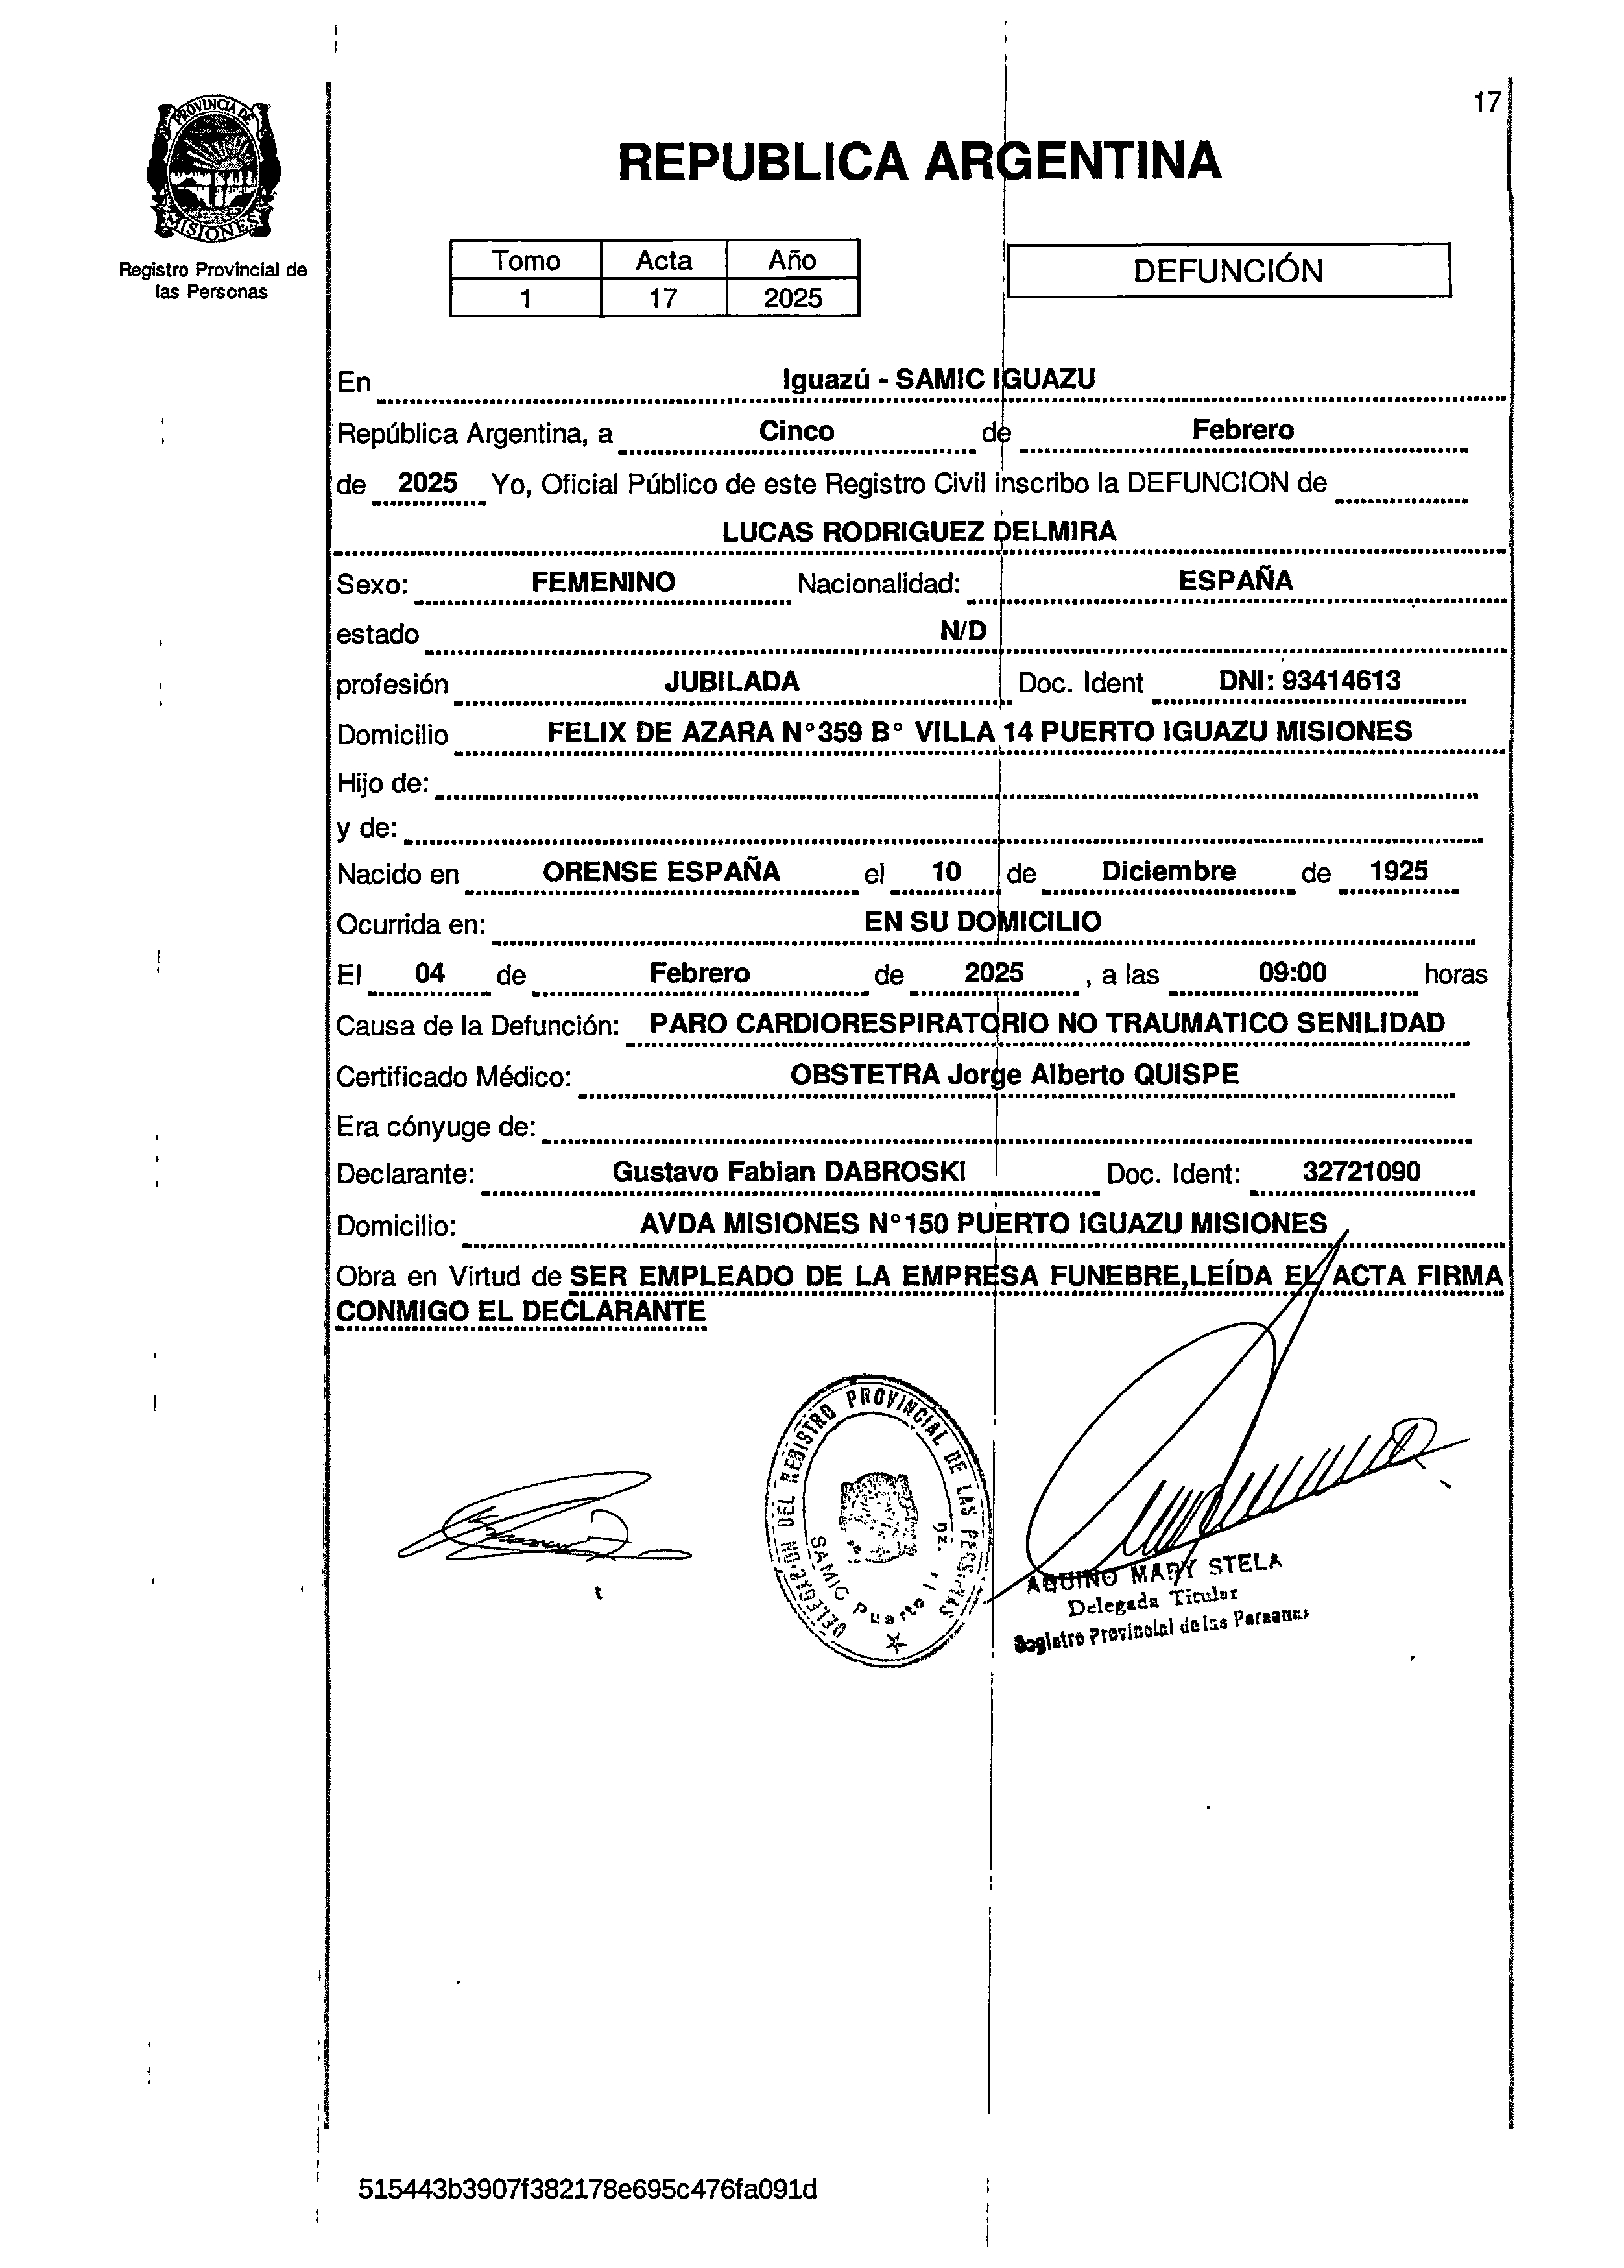 17
PROVINCIA DE
MISIONES
Registro Provincial de
las Personas
REPUBLICA ARGENTINA
Tomo Acta Año
1 17 2025
DEFUNCIÓN
En Iguazú - SAMIC IGUAZU
República Argentina, a Cinco de Febrero
de 2025 Yo, Oficial Público de este Registro Civil inscribo la DEFUNCION de
LUCAS RODRIGUEZ DELMIRA
Sexo: FEMENINO Nacionalidad: ESPAÑA
estado N/D
profesión JUBILADA Doc. Ident DNI: 93414613
Domicilio FELIX DE AZARA N°359 B° VILLA 14 PUERTO IGUAZU MISIONES
Hijo de:
y de:
Nacido en ORENSE ESPAÑA el 10 de Diciembre de 1925
Ocurrida en: EN SU DOMICILIO
El 04 de Febrero de 2025 , a las 09:00 horas
Causa de la Defunción: PARO CARDIORESPIRATORIO NO TRAUMATICO SENILIDAD
Certificado Médico: OBSTETRA Jorge Alberto QUISPE
Era cónyuge de:
Declarante: Gustavo Fabian DABROSKI Doc. Ident: 32721090
Domicilio: AVDA MISIONES N°150 PUERTO IGUAZU MISIONES
Obra en Virtud de SER EMPLEADO DE LA EMPRESA FUNEBRE,LEÍDA EL ACTA FIRMA
CONMIGO EL DECLARANTE
DEL REGISTRO PROVINCIAL DE LAS PERSONAS
SAMIC Puerto
AQUINO MARY STELA
Delegada Titular
Registro Provincial de las Personas
515443b3907f382178e695c476fa091d